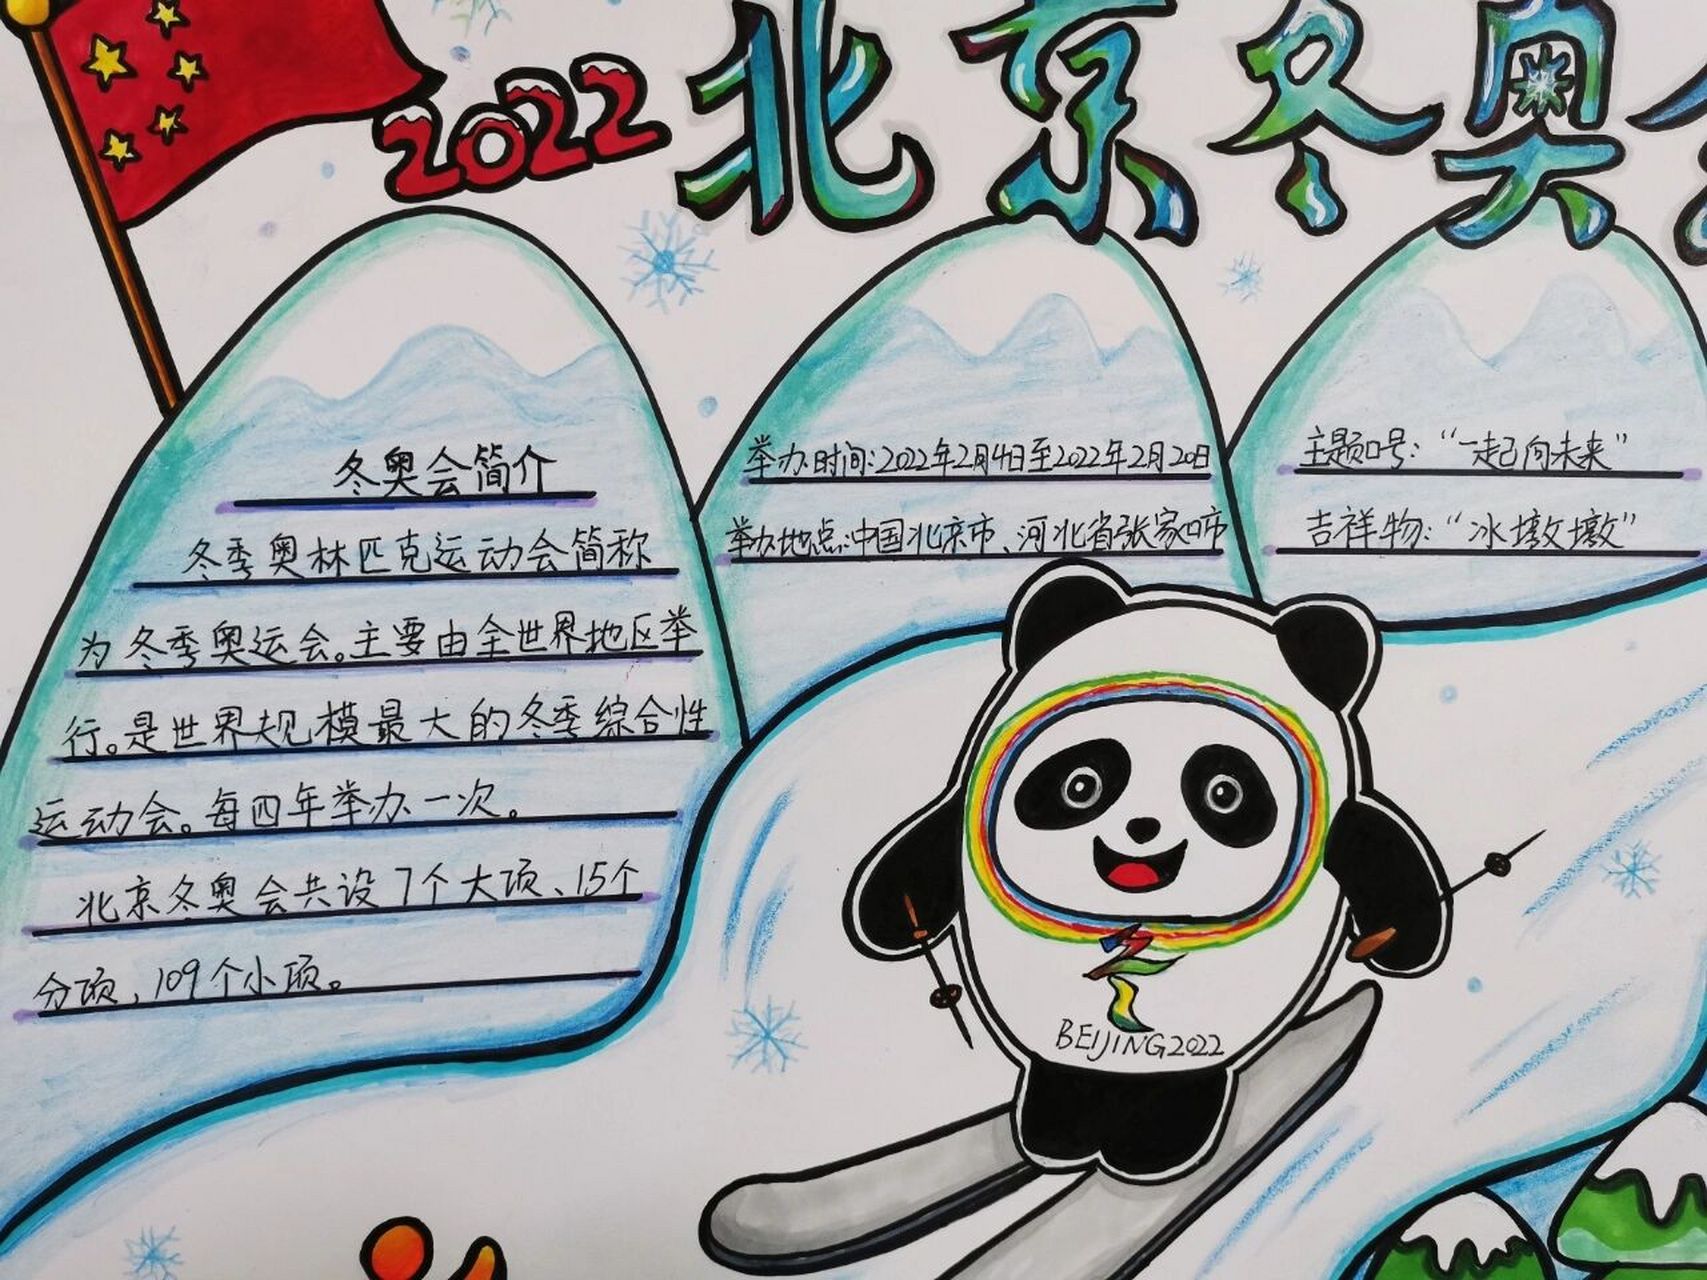 2022 北京冬奥
冬奥会简介
冬季奥林匹克运动会简称
为冬季奥运会。主要由全世界地区举
行。是世界规模最大的冬季综合性
运动会。每四年举办一次。
北京冬奥会共设7个大项、15个
分项,109个小项。
举办时间:2022年2月4日至2022年2月20日
举办地点:中国北京市、河北省张家口市
主题口号:“一起向未来”
吉祥物:“冰墩墩”
BEIJING2022